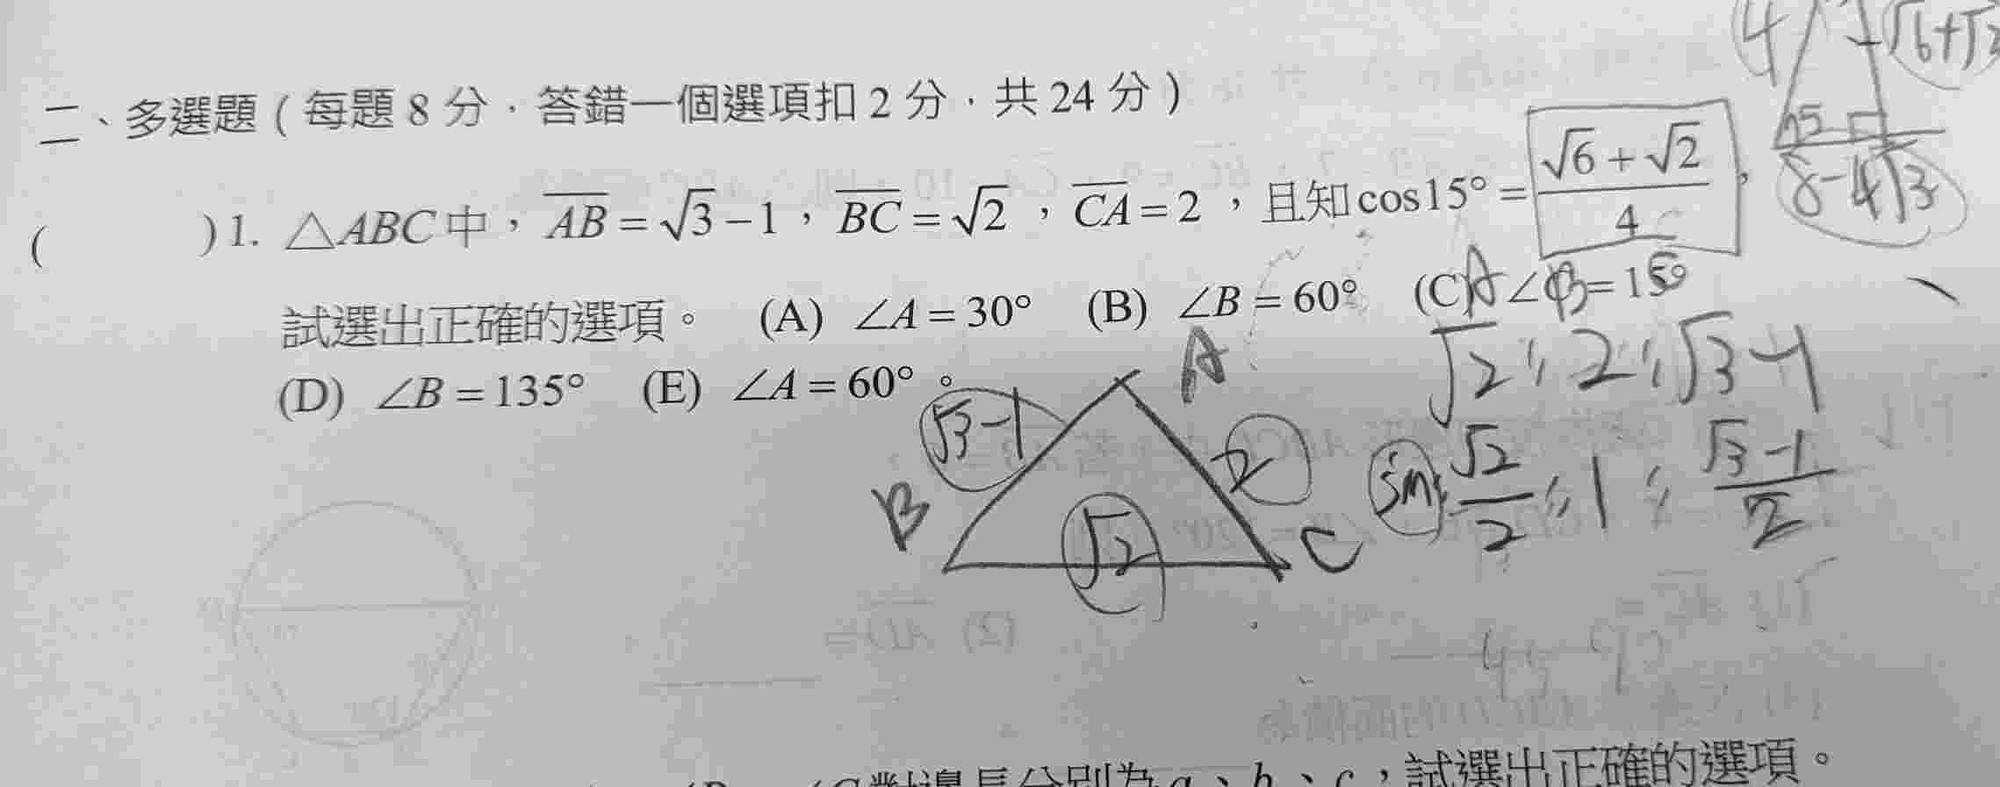 二、多選題(每題8分,答錯一個選項扣2分,共24分)
( )1. △ABC中,AB=√3-1,BC=√2,CA=2,且知cos15°=(√6+√2)/4,
試選出正確的選項。 (A) ∠A=30° (B) ∠B=60° (C) ∠B=15°
(D) ∠B=135° (E) ∠A=60°。
4
√6+√2
8-4√3
A
√2:2:√3-1
√3-1
2
B
√2
C
sin √2/2:1:(√3-1)/2
試選出正確的選項。